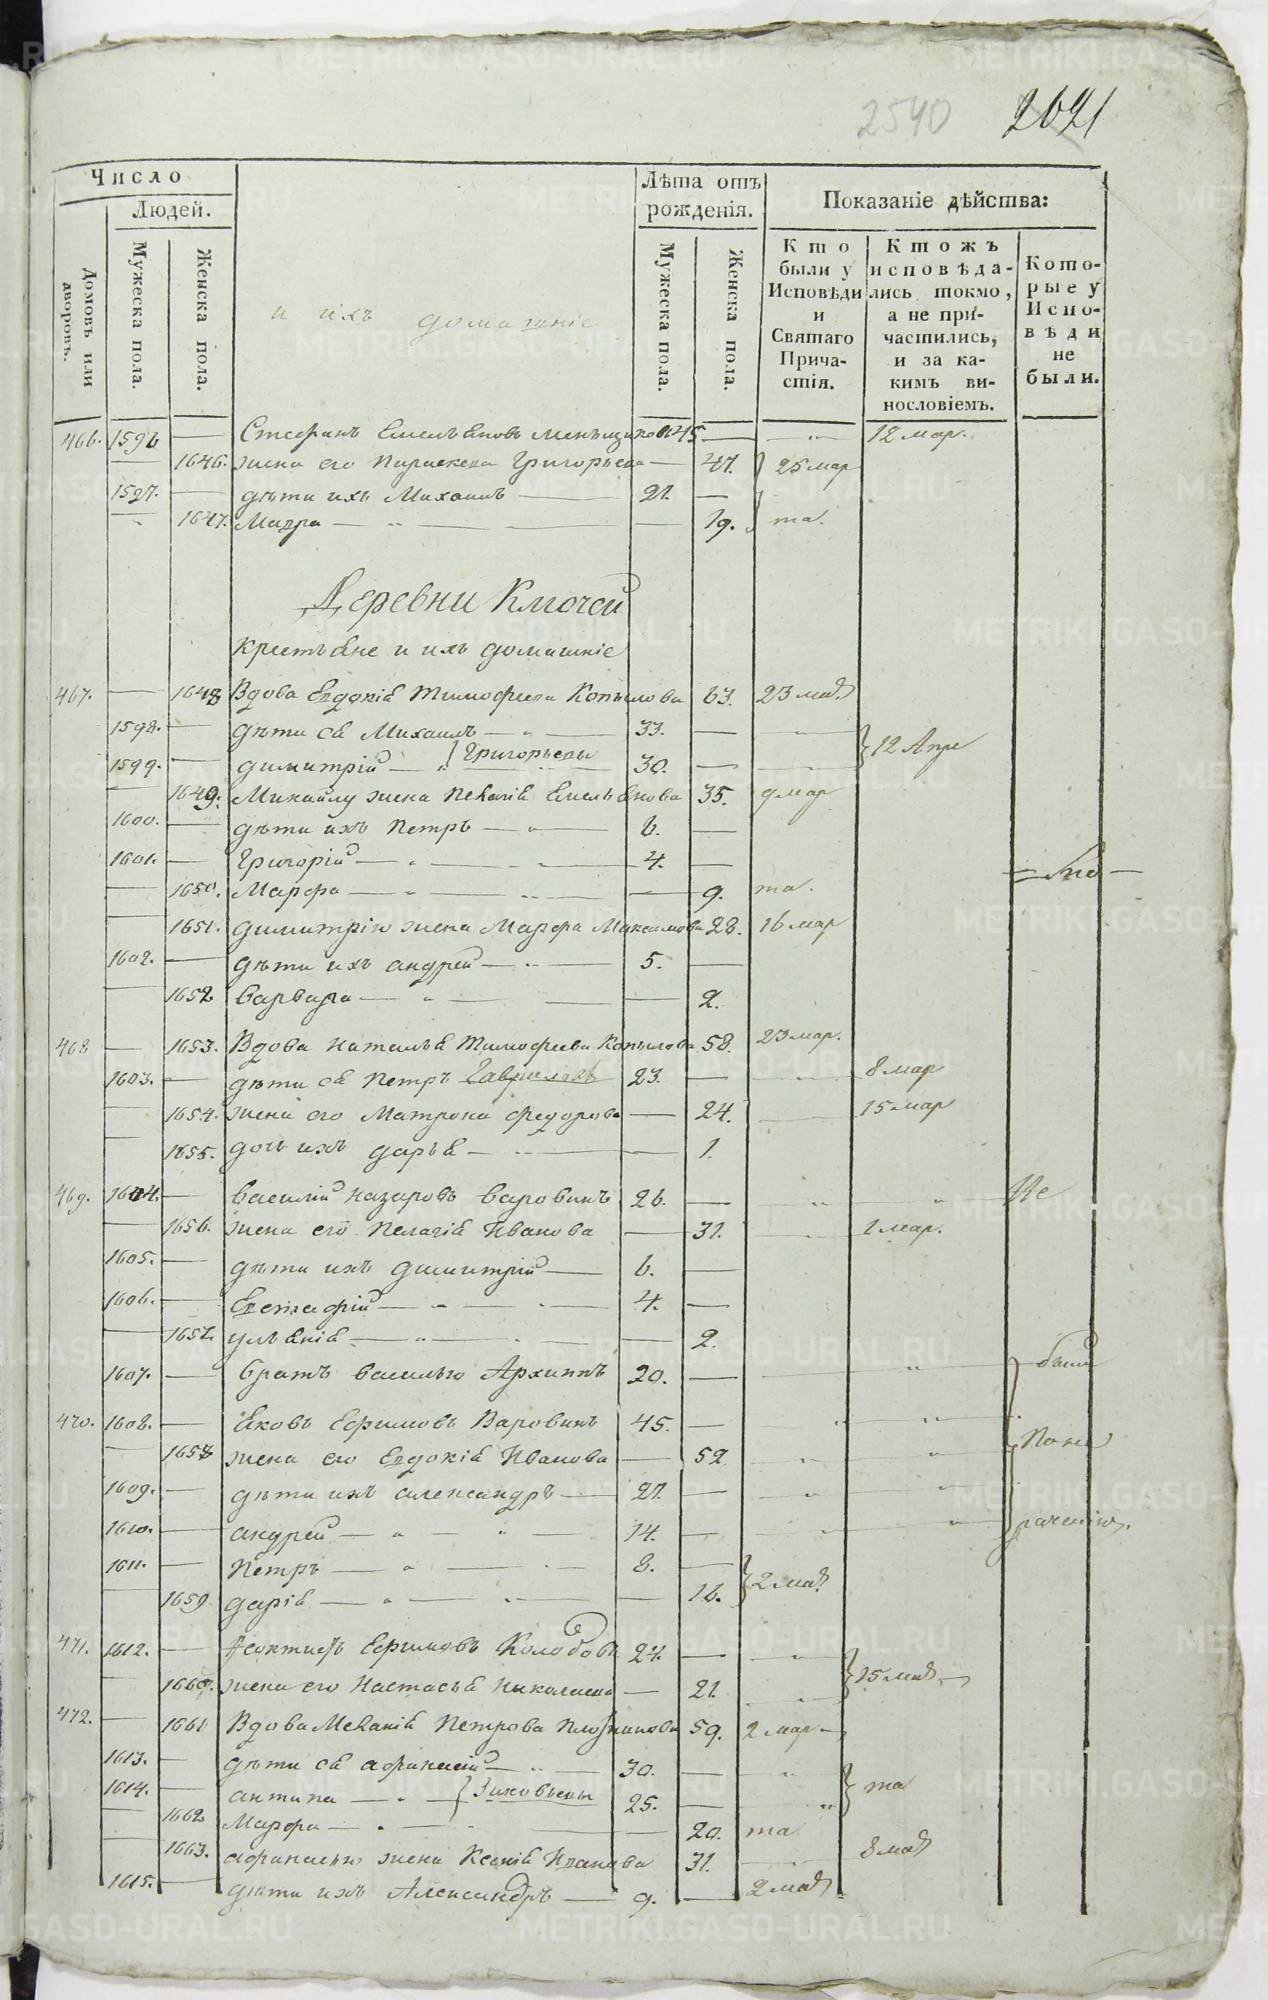 2540 2621
Число
Людей.
Домовъ или дворовъ.
Мужеска пола.
Женска пола.
и ихъ домашніе
Лѣта отъ рожденія.
Мужеска пола.
Женска пола.
Показаніе дѣйства:
Кто были у Исповѣди и Святаго Причастія.
Ктожъ исповѣдались токмо, а не причастились, и за какимъ винословіемъ.
Которые у Исповѣди не были.
466. 1596 — Стефанъ Емельяновъ 45 — 12 мар.
— 1646. жена его Параскева Григорьева — 47. 25 мар
1597. — дѣти ихъ Михаилъ — 21. —
1647. Мавра — 19. та.
Деревни Ключей
крестьяне и ихъ домашніе
467. — 1648 Вдова Евдокія Тимофеева Копылова 63. 23 мая
1598. — дѣти ея Михаилъ — 33. —
1599. — димитрій — Григорьевы 30. — 12 Апр
— 1649. Михайлу жена Пелагія Емельянова 35. 9 мар
1600. — дѣти ихъ Петръ — 6. —
1601. — Григорій — 4. —
— 1650. Марфа — 9. та.
— 1651. димитрію жена Марфа Максимова 28. 16 мар
1602. — дѣти ихъ андрей — 5. —
— 1652 Варвара — 2.
468 — 1653. Вдова Наталья Тимофеева Копылова 58. 23 мар.
1603. — дѣти ея Петръ Гавриловъ 23. — 8 мар
— 1654. жена его Матрона федорова — 24. 15 мар
— 1655. дочь ихъ дарья — 1.
469. 1604. — Василій Назаровъ Варовинъ 26. — Не
— 1656. жена его Пелагія Иванова — 31. 1 мар.
1605. — дѣти ихъ димитрій — 6. —
1606. — Евстафій — 4. —
— 1657. ульянія — 2.
1607. — братъ Василью Архипъ 20. — были
470. 1608. — Яковъ Ефимовъ Варовинъ 45. —
— 1658 жена его Евдокія Иванова — 52 По не
1609. — дѣти ихъ александръ — 21. —
1610. — андрей — 14. — раченію.
1611. — Петръ — 8. —
— 1659 дарія — 16. 2 мая
471. 1612. — Феоктистъ Ефимовъ 24. —
— 1660. жена его Настасья Николаева — 21. 15 мая
472. — 1661 Вдова Меланія Петрова 59. 2 мар
1613. — дѣти ея афанасій — 30. —
1614. — антипа — Зиновьевы 25. — та
— 1662 Марфа — 20. та
— 1663. афанасью жена Ксенія Иванова 31. 8 мая
1615. — дѣти ихъ Александръ — 9. — 2 мая
METRIKI.GASO-URAL.RU